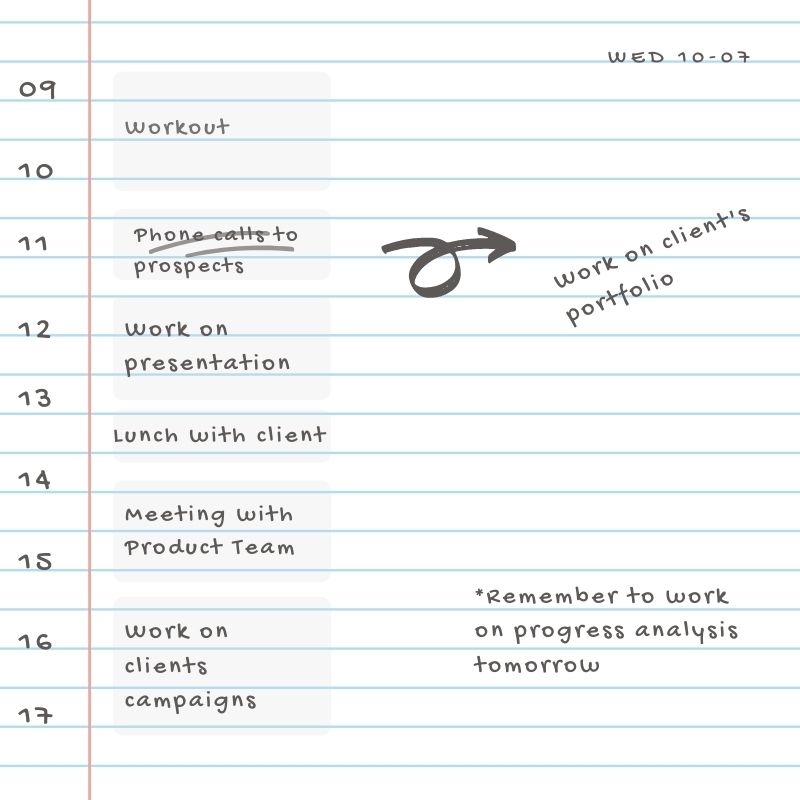 WED 10-07
09
Workout
10
11
Phone calls to
prospects
work on client's
portfolio
12
Work on
presentation
13
Lunch with client
14
Meeting with
Product Team
15
*Remember to work
on progress analysis
tomorrow
16
Work on
clients
campaigns
17